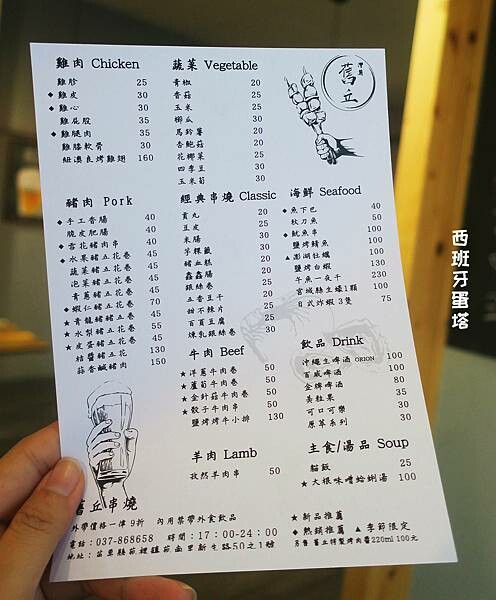 雞肉 Chicken
雞胗 25
◆雞皮 30
◆雞心 30
雞屁股 35
◆雞腿肉 35
雞膝軟骨 30
紐澳良烤雞翅 160
蔬菜 Vegetable
青椒 20
香菇 20
玉米 20
櫛瓜 30
馬鈴薯 20
杏鮑菇 20
花椰菜 25
四季豆 30
玉米筍 30
舊丘
豬肉 Pork
◆手工香腸 40
脆皮肥腸 40
◆雪花豬肉串 40
◆水果豬五花卷 45
蔬菜豬五花卷 45
泡菜豬五花卷 45
青蔥豬五花卷 45
◆蝦仁豬五花卷 70
★青龍豬五花卷 45
★水梨豬五花卷 55
★皮蛋豬五花卷 45
桔醬豬五花 130
蒜香鹹豬肉 150
經典串燒 Classic
貢丸 20
豆皮 25
米腸 30
芋粿籤 30
豬血糕 20
鑫鑫腸 20
銀絲卷 25
五香豆干 20
甜不辣片 25
百頁豆腐 25
煉乳銀絲卷 30
海鮮 Seafood
◆魚下巴 40
秋刀魚 50
◆魷魚串 100
鹽烤鯖魚 100
▲澎湖牡蠣 100
鹽烤白蝦 130
午魚一夜干 230
宮城縣生蠔1顆 100
日式炸蝦 3隻 75
牛肉 Beef
★洋蔥牛肉卷 50
★蘆筍牛肉卷 50
★金針菇牛肉卷 50
★骰子牛肉串 50
鹽烤烤牛小排 130
飲品 Drink
沖繩生啤酒 ORION 100
百威啤酒 100
金牌啤酒 80
黃粒果 35
可口可樂 30
原萃系列 30
羊肉 Lamb
孜然羊肉串 50
主食/湯品 Soup
貓飯 25
★大根味噌蛤蜊湯 100
舊丘串燒
外帶價格一律9折 內用禁帶外食飲品
電話：037-868658 時間：17:00-24:00
地址：苗栗縣苑裡鎮苑南里新生路50之1號
★ 新品推薦
◆ 熱銷推薦 ▲ 季節限定
另售 舊丘特製烤肉醬220ml 100元
西班牙蛋塔